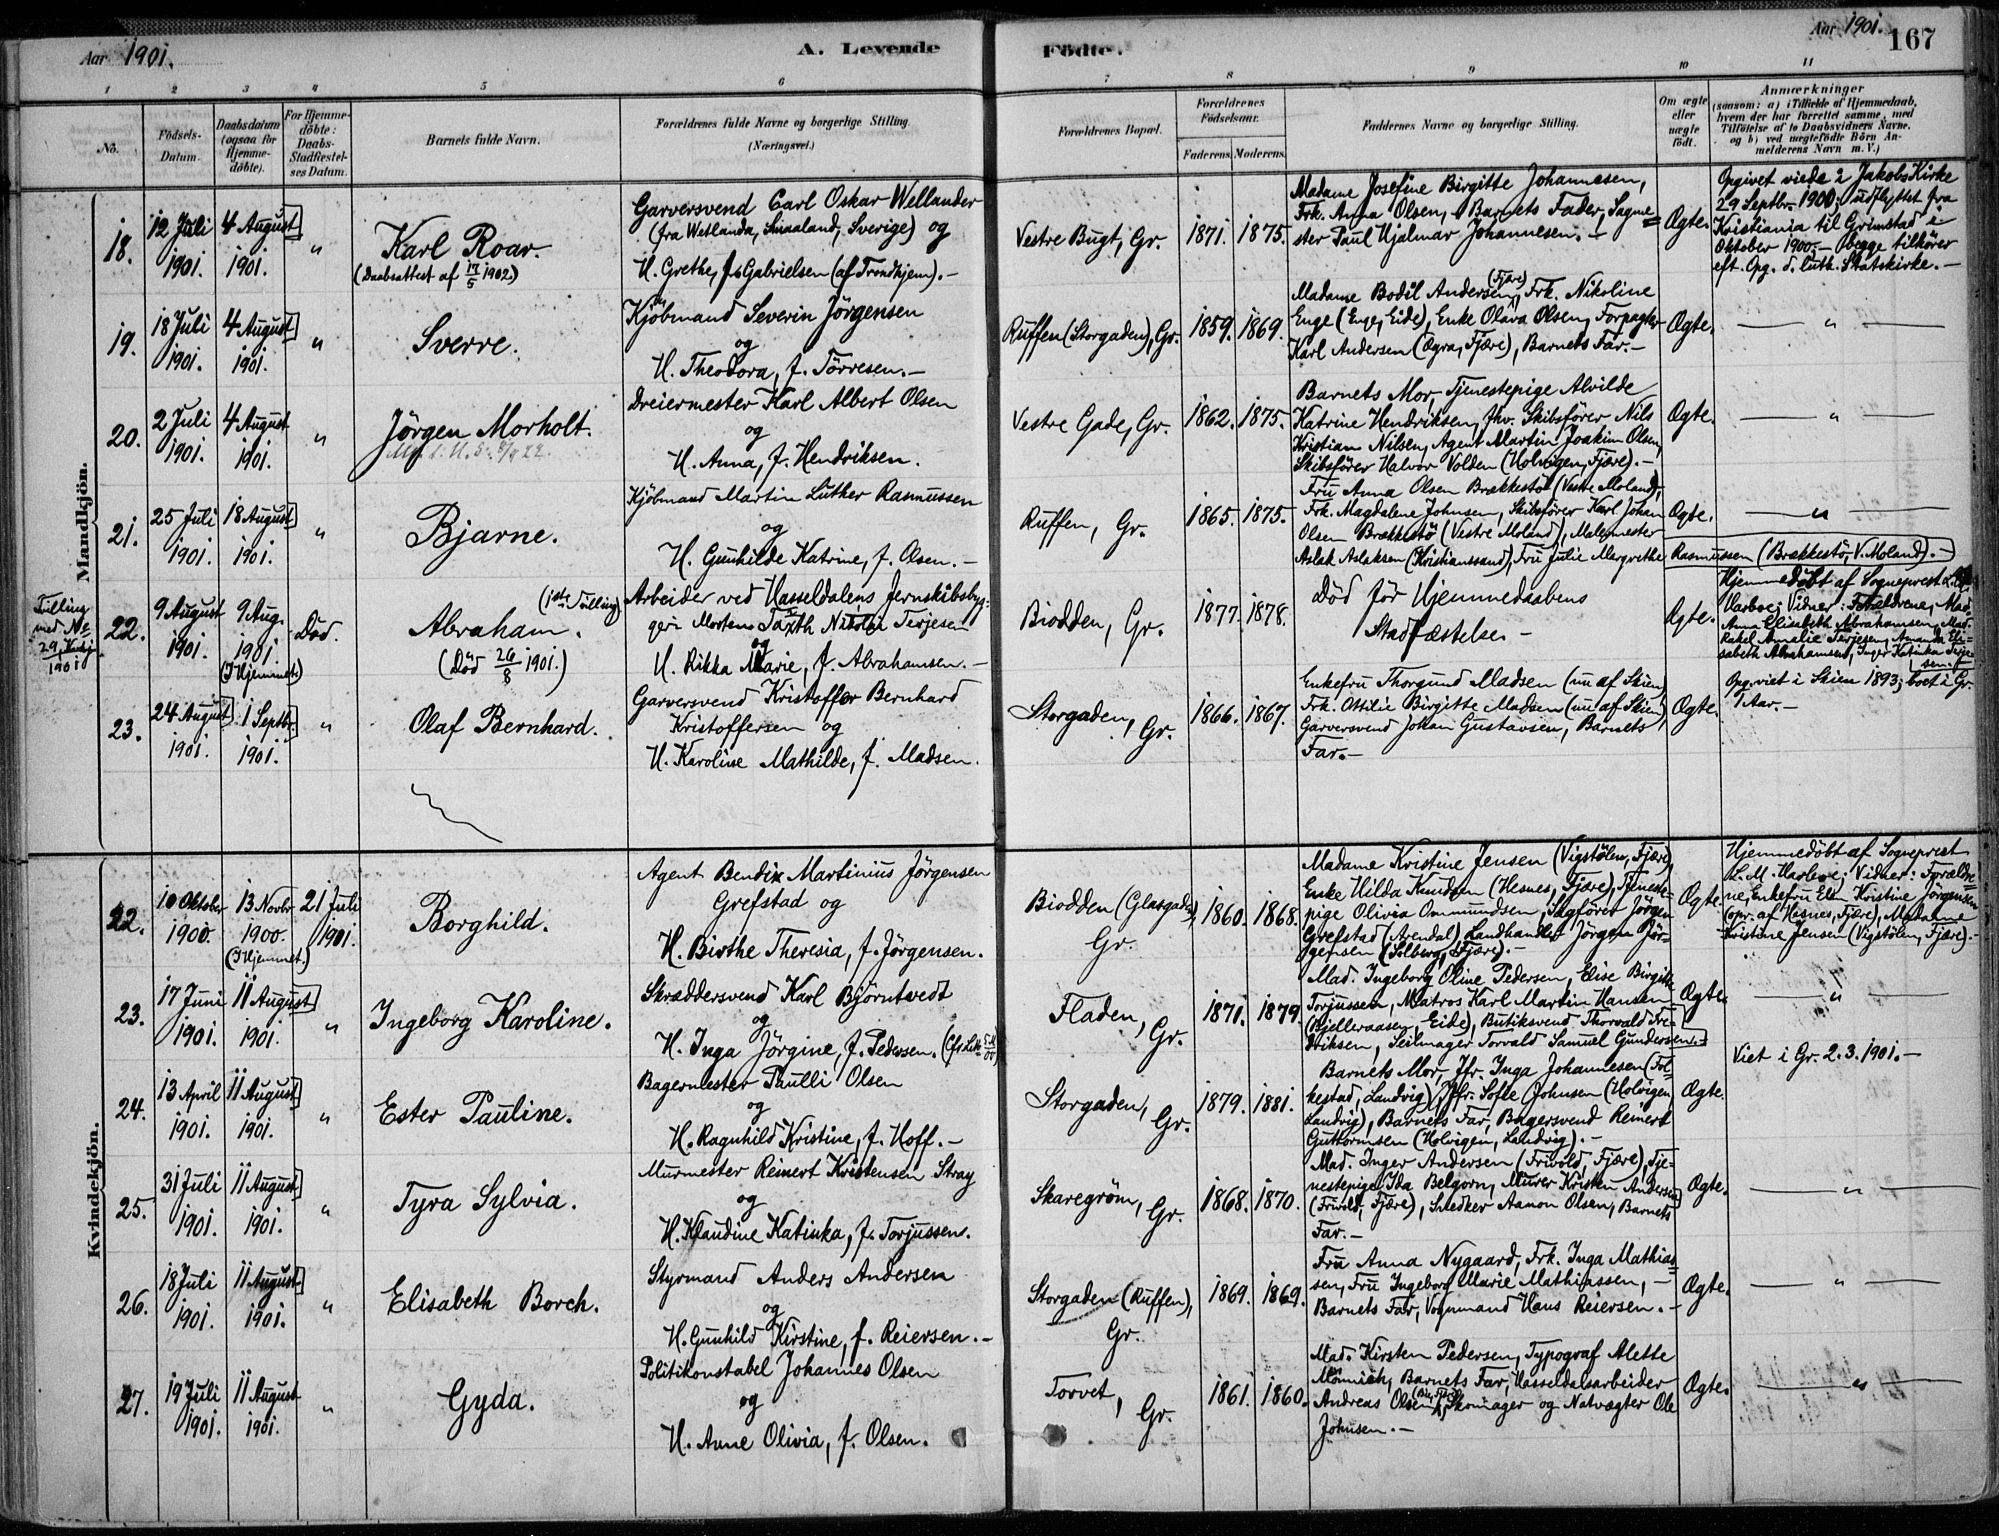 Aar 1901.
A. Levende
Födte.
Aar 1901.
167
1 2 3 4 5 6 7 8 9 10 11
No.
Födsels-
Datum.
Daabsdatum
(ogsaa for
Hjemme-
döbte).
For Hjemme-
döbte:
Daabs-
Stadfæstel-
ses Datum.
Barnets fulde Navn.
Forældrenes fulde Navne og borgerlige Stilling.
(Næringsvei.)
Forældrenes Bopæl.
Forældrenes
Födselsaar.
Faderens. Moderens.
Faddernes Navne og borgerlige Stilling.
Om ægte
eller
uægte
födt.
Anmærkninger
(saasom: a) i Tilfælde af Hjemmedaab,
hvem der har forrettet samme, med
Tilföielse af to Daabsvidners Navne,
og b) ved uægtefödte Börn An-
melderens Navn m.V.)
Mandkjön.
18.
12 Juli
1901.
4 August
1901.
"
Karl Roar.
(Daabsattest af 17/5 1902)
Garversvend Carl Oskar Wellander
(fra Wetlanda, Smaaland, Sverige) og
H. Grethe, f. Gabrielsen (af Trondhjem).-
Vestre Bugt, Gr.
1871. 1875.
Madame Josefine Birgitte Johannesen,
Frk. Anna Olsen, Barnets Fader, Sagme=
ster Paul Hjalmar Johannesen.-
Ægte.
Opgivet viede 2 Jakobs Kirke
29 Septbr. 1900; udflyttet fra
Kristiania til Grimstad i
Oktober 1900.- Begge tilhörer
eft. Opg. d. luth. Statskirke.-
19.
18 Juli
1901.
4 August
1901.
"
Sverre.
Kjöbmand Severin Jörgensen
og
H. Theodora, f. Törresen.-
Ruffen (Storgaden), Gr.
1859. 1869.
Madame Bodil Andersen (Fjære), Frk. Nikoline
Enge (Enge, Eide), Enke Olava Olsen, Forpagter
Karl Andersen (Ægra, Fjære), Barnets Far.-
Ægte.
"
20.
2 Juli
1901.
4 August
1901.
"
Jörgen Morholt.
Dreiermester Karl Albert Olsen
og
H. Anna, f. Hendriksen.
Vestre Gade, Gr.
1862. 1875.
Barnets Mor, Tjenestepige Alvilde
Katrine Hendriksen, fhv. Skibsförer Nils
Kristian Nilsen, Agent Martin Joakim Olsen,
Skibsförer Halvor Volden (Holvigen, Fjære).-
Ægte.
"
21.
25 Juli
1901.
18 August
1901.
"
Bjarne.
Kjöbmand Martin Luther Rasmussen
og
H. Gunhilde Katrine, f. Olsen.-
Ruffen, Gr.
1865. 1875.
Fru Anna Olsen Brækkestö (Vestre Moland),
Frk. Magdalene Johnsen, Skibsförer Karl Johan
Olsen Brækkestö (Vestre Moland), Malermester
Aslak Aslaksen (Kristianssand), Fru Julie Margrethe
Rasmussen (Brækkestö, V. Moland).-
Ægte.
"
Tvilling
med No
29, Kvkj.
1901
22.
9 August
1901.
9 Aug.
1901
(I Hjemmet)
Död.
(1ste Tvilling)
Abraham.
(Död 26/8 1901.)
Arbeider ved Hasseldalens Jernskibsbyg-
geri Morten Taxth Nikolai Terjesen
og
H. Rikka Marie, f. Abrahamsen.-
Biodden, Gr.
1877. 1878.
Död för Hjemmedaabens
Stadfæstelse.-
Ægte.
Hjemmedöbt af Sogneprest L.M.
Harboe; Vidner: Forældrene, Mad.
Anna Elisabeth Abrahamsen, Mad.
Rakel Amalie Terjesen, Amanda Eli-
sabeth Abrahamsen, Inger Katinka Terje-
sen.-
23.
24 August
1901.
1 Septbr.
1901.
"
Olaf Bernhard.
Garversvend Kristoffer Bernhard
Kristoffersen og
H. Karoline Mathilde, f. Madsen.
Storgaden, Gr.
1866. 1867.
Enkefru Thorgund Madsen (nu af Skien)
Frk. Ottilie Birgitte Madsen (nu af Skien)
Garversvend Johan Gustavsen, Barnets
Far.-
Ægte.
Opg. viet i Skien 1893; boet i Gr.
1 Aar.-
Kvindekjön.
22.
10 Oktober
1900.
13 Novbr
1900.
(I Hjemmet.)
21 Juli
1901.
Borghild.
Agent Bendix Martinius Jörgensen
Grefstad og
H. Birthe Theresia, f. Jörgensen.
Biodden (Glasgaden),
Gr.
1860. 1868.
Madame Kristine Jensen (Vigstölen, Fjære)
Enke Hilda Knudsen (Hesnes, Fjære), Tjeneste-
pige Olivia Ommundsen, Sagförer Jörgen
Grefstad (Arendal), Landhandler Jörgen Jör-
gensen (Solberg, Fjære).-
Ægte
Hjemmedöbt af Sogneprest
L. M. Harboe; Vidner: Foræld­re=
ne, Enkefru Ellen Kristine Jörgensen
(opr. af Hesnes, Fjære), Madame
Kristine Jensen (Vigstölen, Fjære).-
23.
17 Juni
1901.
11 August
1901.
"
Ingeborg Karoline.
Skræddersvend Karl Björntvedt
og
H. Inga Jörgine, f. Pedersen.
Fladen, Gr.
1871. 1879.
Mad. Ingeborg Oline Pedersen, Elise Birgitte
Torjussen, Matros Karl Martin Hansen
(Bjelleraasen, Eide), Butiksvend Thorvald Fre-
driksen, Seilmager Torvald Samuel Gundersen.-
Ægte.
"
24.
13 April
1901.
11 August
1901.
"
Ester Pauline.
Bagermester Paulli Olsen
og
H. Ragnhild Kristine, f. Hoff.-
Storgaden, Gr.
1879. 1881.
Barnets Mor, Jfr. Inga Johannesen (Fol-
kestad, Landvig), Jfr. Sofie Johnsen (Holvigen
Landvig), Barnets Far, Bagersvend Reinert
Guttormsen (Holvigen, Landvig).-
Ægte.
Viet i Gr. 2.3.1901.-
25.
31 Juli
1901.
11 August
1901.
"
Tyra Sylvia.
Murmester Reinert Kristensen Stray
og
H. Klaudine Katinka, f. Torjussen.
Skaregröm, Gr.
1868. 1870.
Mad. Inger Andersen (Frivold, Fjære), Tje-
nestepige Ida Belgorn, Murer Kristen Andersen
(Frivold, Fjære), Snedker Aanon Olsen, Barnets
Far.-
Ægte.
"
26.
18 Juli
1901.
11 August
1901.
"
Elisabeth Borch.
Styrmand Anders Andersen
og
H. Gunhild Kirstine, f. Reiersen.-
Storgaden (Ruffen),
Gr.
1869. 1869.
Fru Anna Nygaard, Frk. Inga Mathias=
sen, Fru Ingeborg Marie Mathiassen,-
Barnets Far, Vognmand Hans Reiersen.-
Ægte.
"
27.
19 Juli
1901.
11 August
1901.
"
Gyda.
Politikonstabel Johannes Olsen
og
H. Anne Olivia, f. Olsen.
Torvet, Gr.
1861. 1860.
Mad. Kirsten Pedersen, Typograf Alette
Mömich, Barnets Far, Hasseldalsarbeider
Andreas Olsen, Skomager og Natvægter Ole
Johnsen.-
Ægte.
"